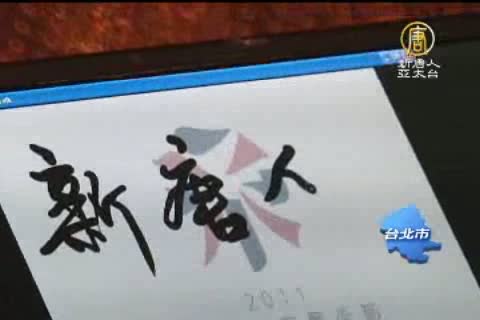 唐
新唐人
亞太台
新唐人
台北市
2011